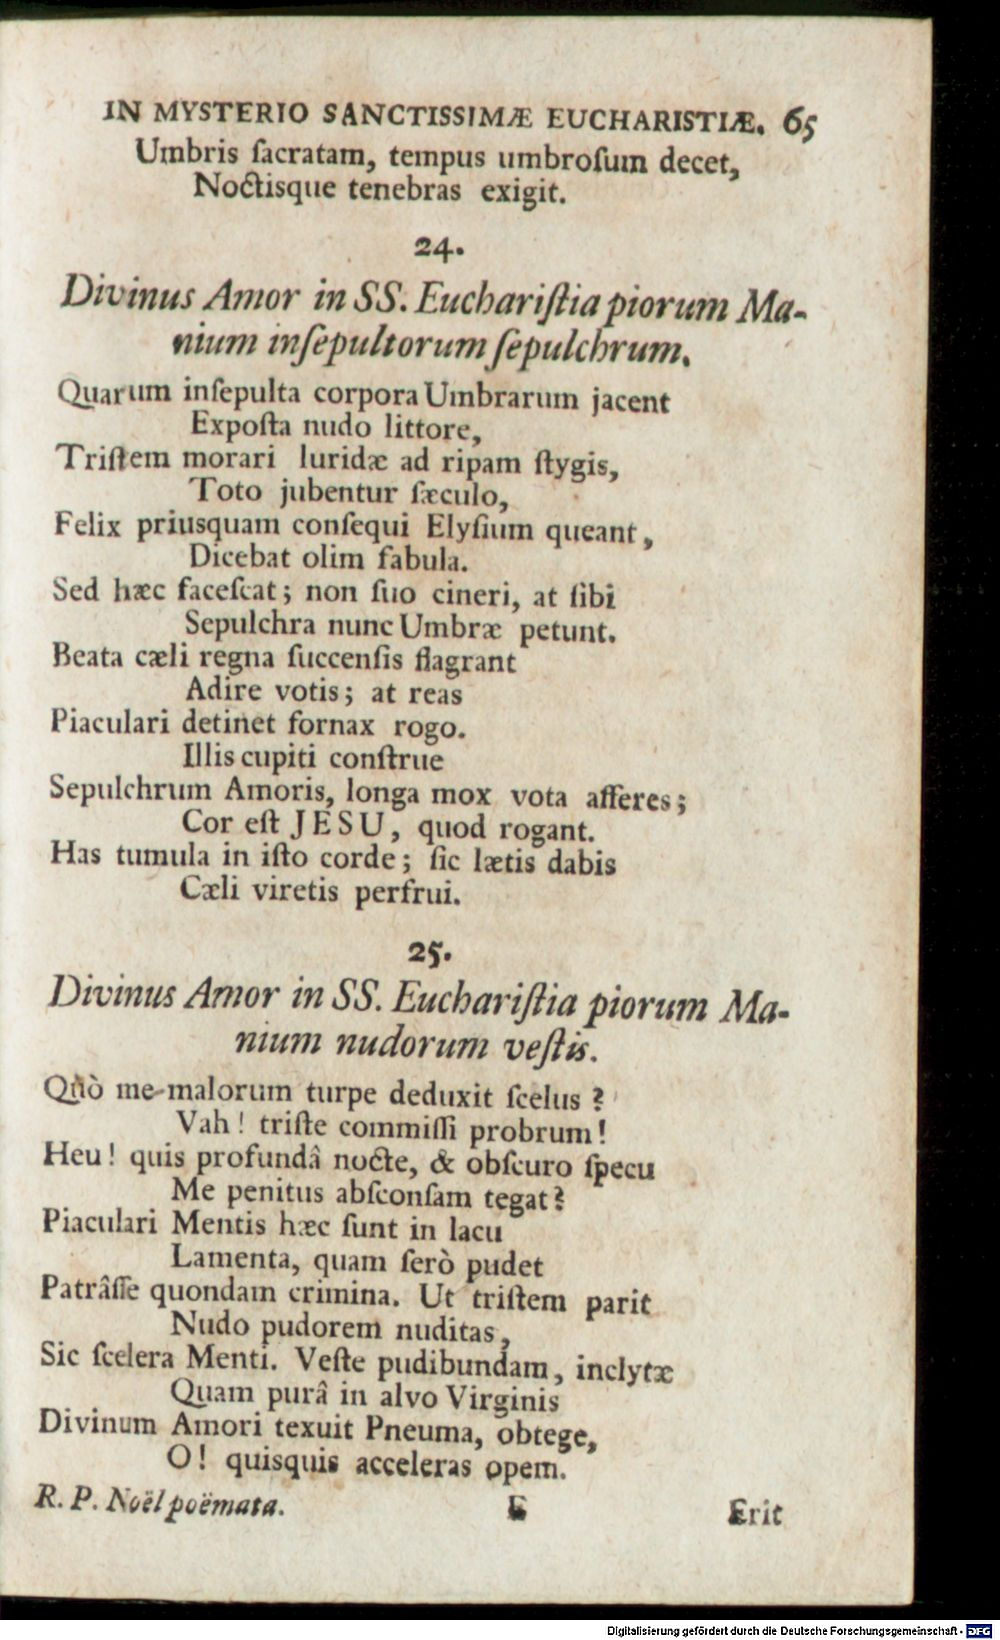 IN MYSTERIO SANCTISSIMÆ EUCHARISTIÆ. 65
Umbris ſacratam, tempus umbroſum decet,
Noctisque tenebras exigit.
24.
Divinus Amor in SS. Euchariſtia piorum Ma-
nium inſepultorum ſepulchrum.
Quarum inſepulta corpora Umbrarum jacent
Expoſta nudo littore,
Triſtem morari luridæ ad ripam ſtygis,
Toto jubentur ſæculo,
Felix priusquam conſequi Elyſium queant,
Dicebat olim fabula.
Sed hæc faceſcat; non ſuo cineri, at ſibi
Sepulchra nunc Umbræ petunt.
Beata cæli regna ſuccenſis flagrant
Adire votis; at reas
Piaculari detinet fornax rogo.
Illis cupiti conſtrue
Sepulchrum Amoris, longa mox vota afferes;
Cor eſt JESU, quod rogant.
Has tumula in iſto corde; ſic lætis dabis
Cæli viretis perfrui.
25.
Divinus Amor in SS. Euchariſtia piorum Ma-
nium nudorum veſtis.
Quò me malorum turpe deduxit ſcelus?
Vah! triſte commiſſi probrum!
Heu! quis profundâ nocte, & obſcuro ſpecu
Me penitus abſconſam tegat?
Piaculari Mentis hæc ſunt in lacu
Lamenta, quam ſerò pudet
Patrâſſe quondam crimina. Ut triſtem parit
Nudo pudorem nuditas,
Sic ſcelera Menti. Veſte pudibundam, inclytæ
Quam purâ in alvo Virginis
Divinum Amori texuit Pneuma, obtege,
O! quisquis acceleras opem.
R. P. Noël poëmata. E Erit
Digitalisierung gefördert durch die Deutsche Forschungsgemeinschaft - DFG